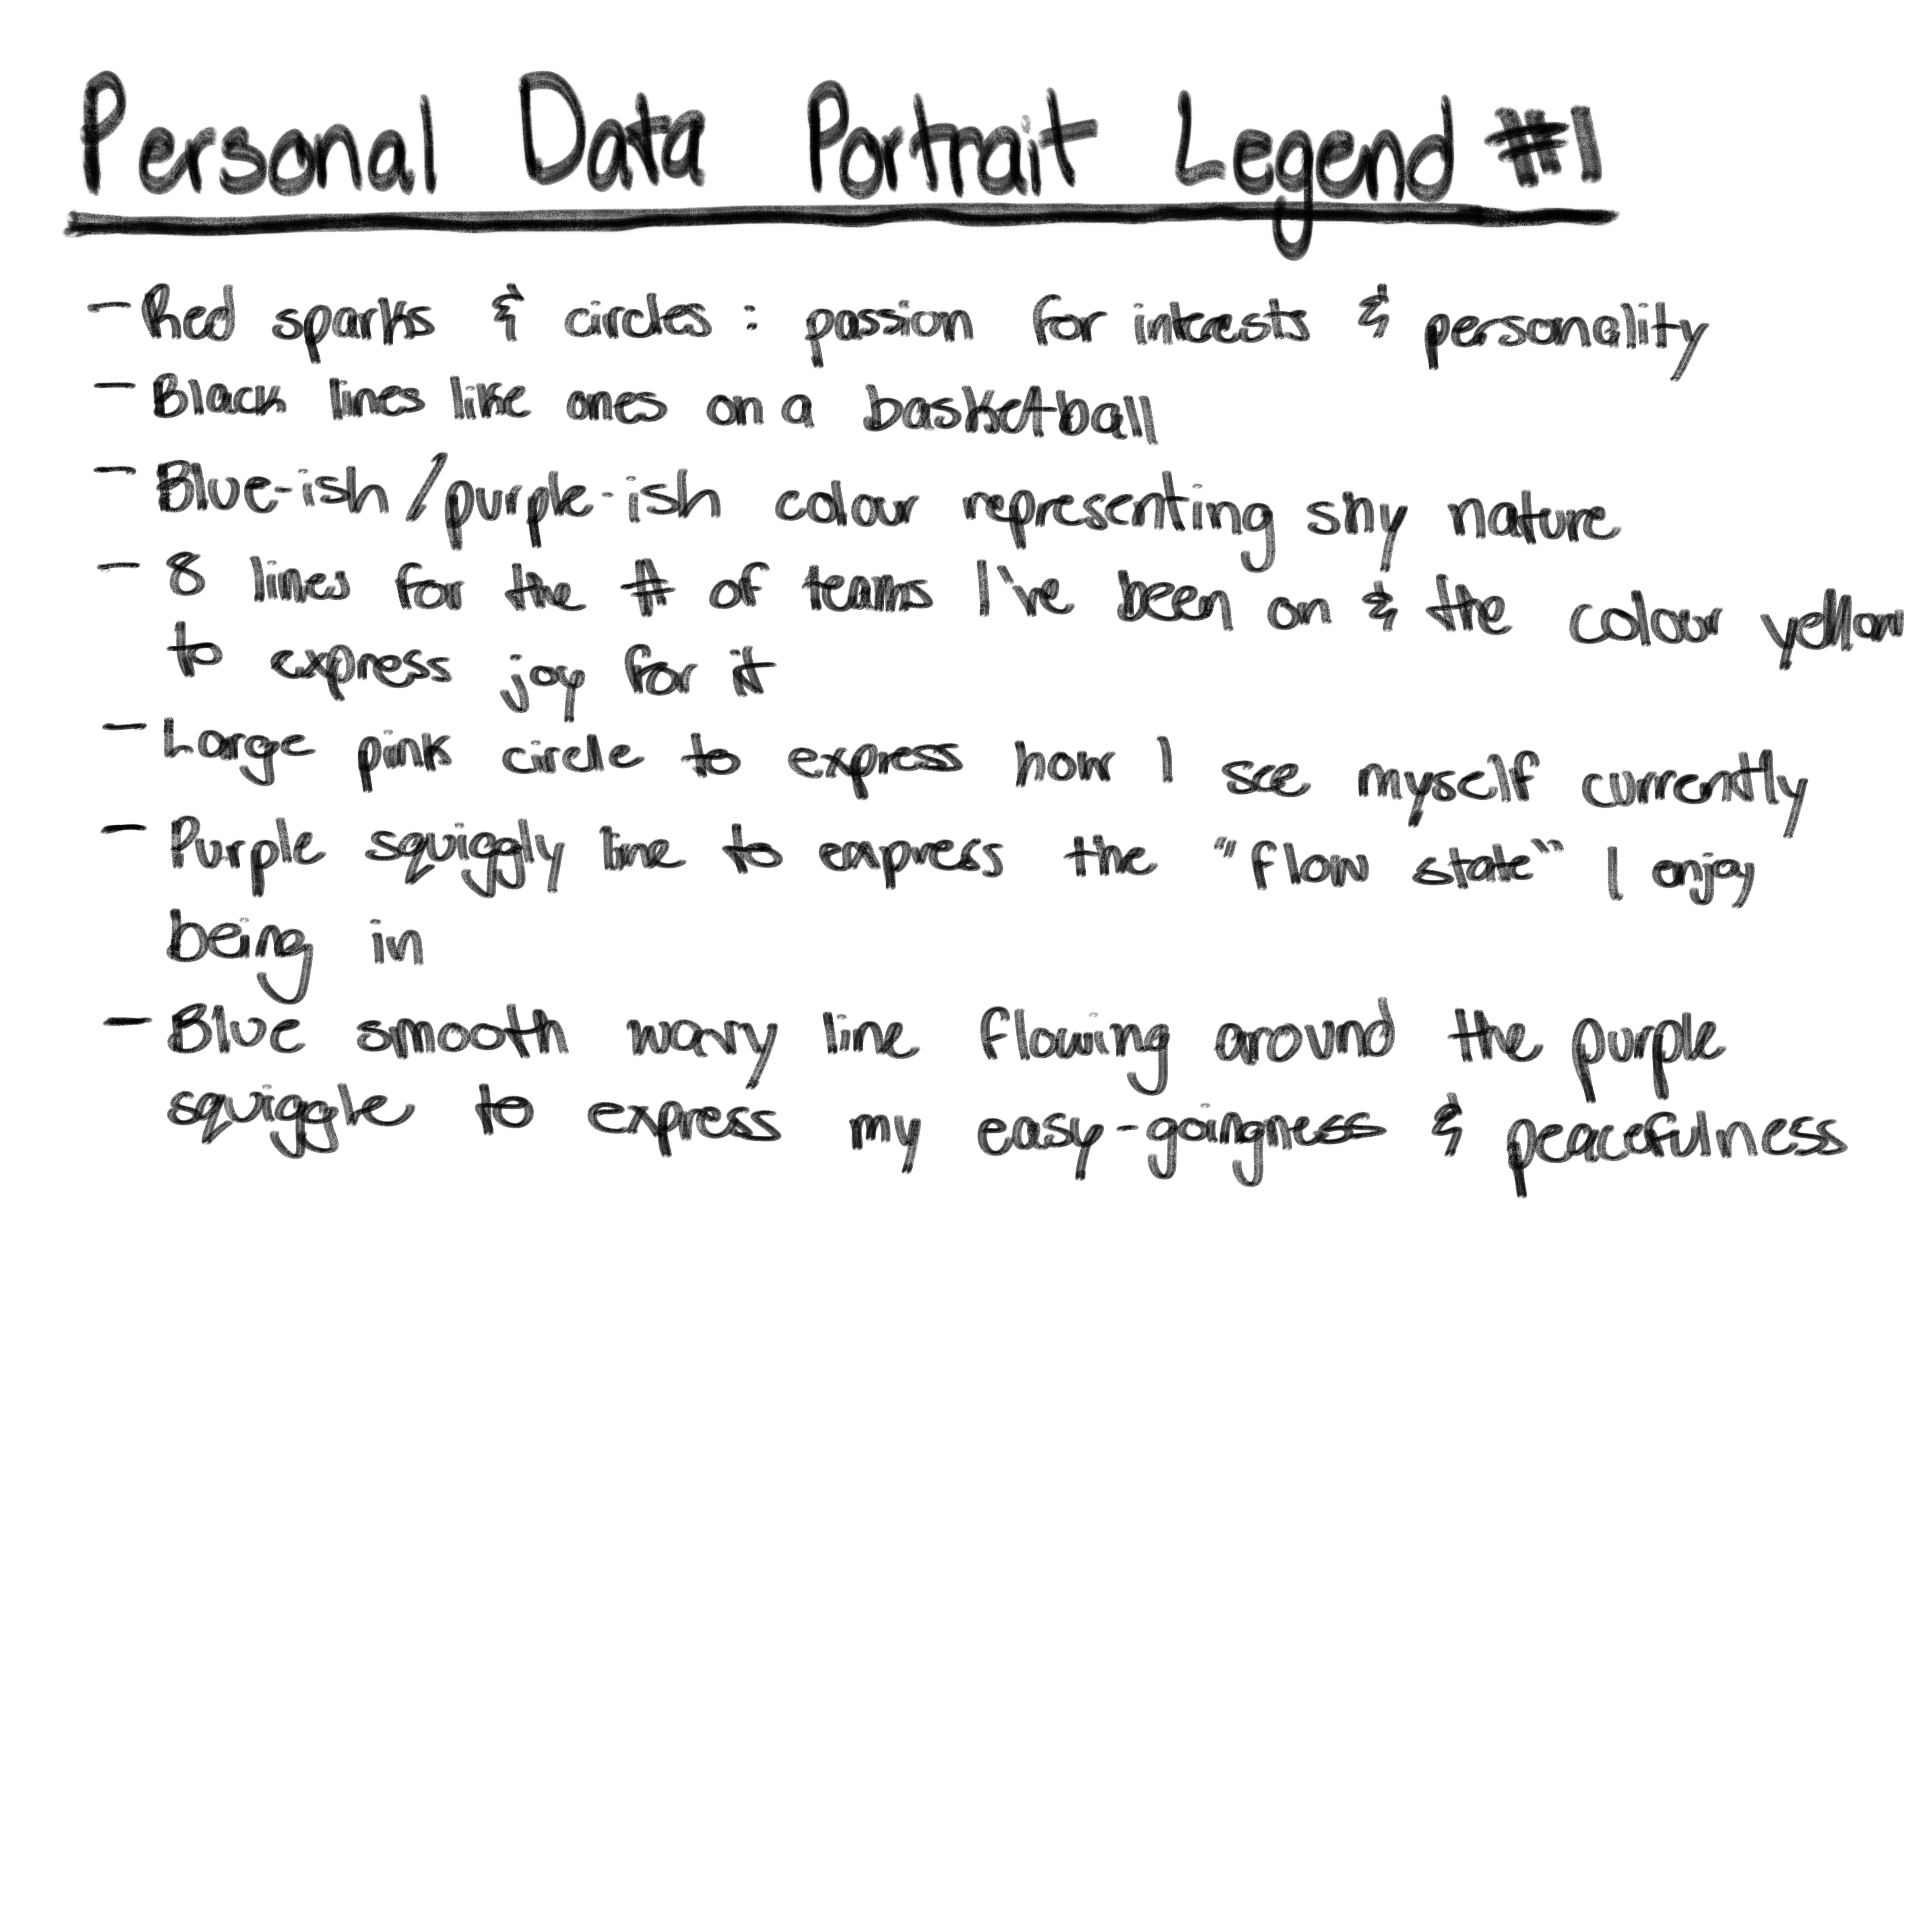 Personal Data Portrait Legend #1
- Red sparks & circles : passion for interests & personality
- Black lines like ones on a basketball
- Blue-ish/purple-ish colour representing shy nature
- 8 lines for the # of teams I've been on & the colour yellow
to express joy for it
- Large pink circle to express how I see myself currently
- Purple squiggly line to express the "flow state" I enjoy
being in
- Blue smooth wavy line flowing around the purple
squiggle to express my easy-goingness & peacefulness